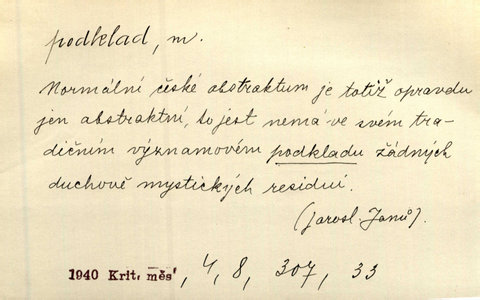 podklad, m.
Normální české abstraktum je totiž opravdu
jen abstraktní, to jest nemá ve svém tra-
dičním významovém podkladu žádných
duchově mystických residuí.
(Jarosl. Janů).
1940 Krit. měs., 4, 8, 307, 33